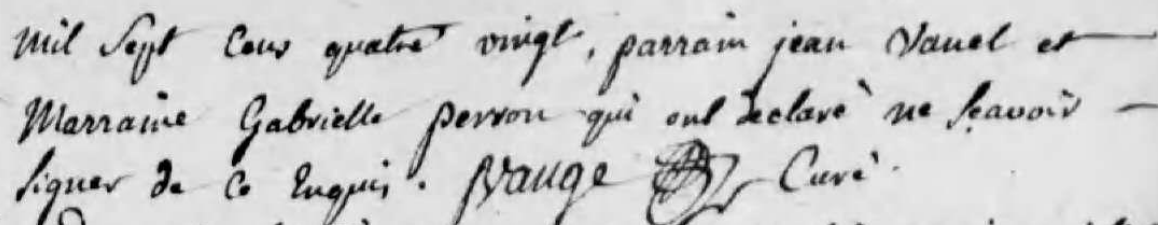 Mil Sept Cens quatre vingt, parrain jean Vanel et
Marraine Gabrielle perron qui ont déclaré ne sçavoir
signer de ce Enquis. Bauge Curé.